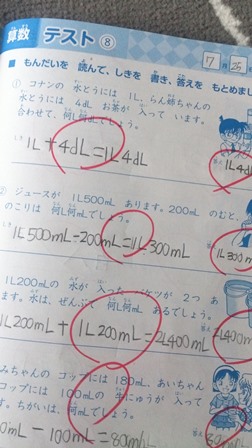 算数 テスト ⑧
7月25
■ もんだいを 読んで、しきを 書き、答えを もとめまし
① コナンの 水とうには 1L、らん姉ちゃんの
水とうには 4dL お茶が 入って います。
合わせて、何L何dLでしょう。
1L+4dL=1L4dL
1L4dL
② ジュースが 1L500mL あります。200mL のむと、
のこりは 何L何mLでしょう。
1L500mL-200mL=1L300mL
1L300mL
1L200mLの 水が 入った バケツが 2つ あ
ます。水は、ぜんぶで 何L何mL あるでしょう。
1L200mL+1L200mL=2L400mL
2L400m
みちゃんの コップには 180mL、あいちゃん
コップには 100mLの 牛にゅうが 入って
す。ちがいは、何mLでしょう。
0mL-100mL=80mL
80m